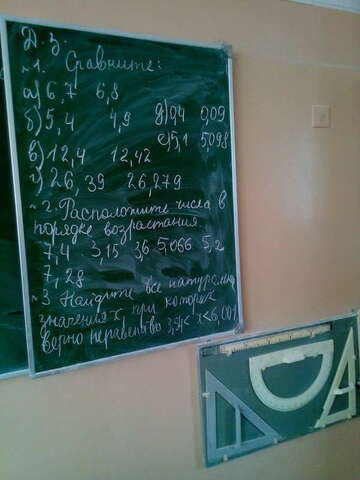 Д. З.
№1. Сравните:
а) 6,7 6,8
б) 5,4 4,9 д) 0,4 0,09
в) 12,4 12,42 е) 5,1 5,098
г) 26,39 26,279
№2. Расположите числа в
порядке возрастания
7,4 3,15 3,6 5,066 5,2
7,28
№3. Найдите все натуральн
значения x, при которых
верно неравенство 3,54 < x < 6,001